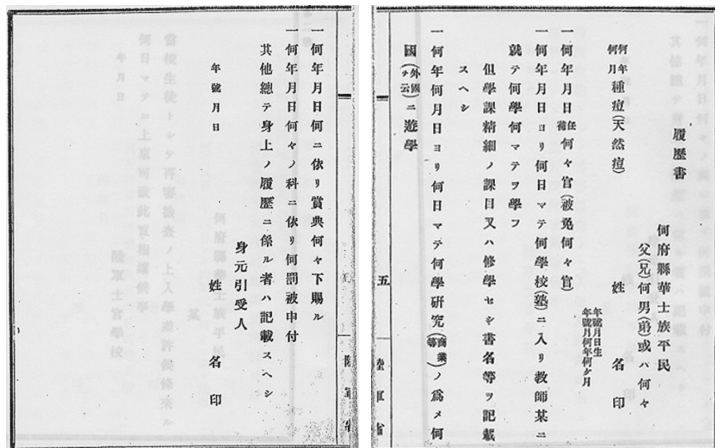 履歷書
何府縣華士族平民
父(兄)何男(弟)或ハ何々
姓 名 印
年號月日生
年號月何年何ケ月
何年何月種痘(天然痘)
一何年月日任補何々官(被免何々官)
一何年月日ヨリ何日マテ何學校(塾)ニ入リ教師某ニ
就テ何學何マテヲ學フ
但學課精細ノ課目又ハ修學セシ書名等ヲ記載
スヘシ
一何年何月日ヨリ何日マテ何學研究(商業等)ノ爲メ何
國(外國ヲ云)ニ遊學
五
陸軍省
一何年月日何ニ依リ賞典何々下賜ル
一何年月日何々ノ科ニ依リ何罰被申付
其他總テ身上ノ履歷ニ係ル者ハ記載スヘシ
年號月日
身元引受人
姓 名 印